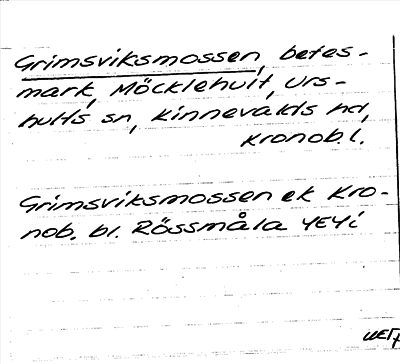 Grimsviksmossen, betes-
mark, Möcklehult, Urs-
hults sn, Kinnevalds hd,
Kronob. l.
Grimsviksmossen ek Kro-
nob. bl. Rössmåla 4E4i